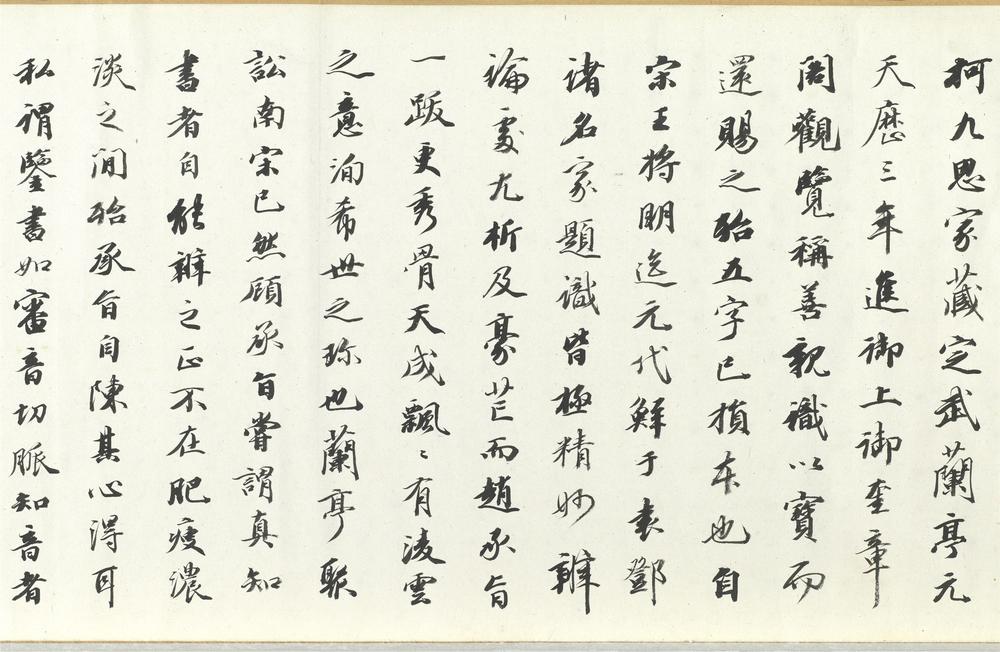 柯九思家藏定武蘭亭元
天曆三年進御上御奎章
閣觀覽稱善親識以寶而
還賜之殆五字已損本也自
宋王將明迄元代鮮于袁鄧
諸名家題識皆極精妙辨
論處尤析及豪芒而趙承旨
一跋更秀骨天成飄〻有淩雲
之意洵希世之珎也蘭亭聚
訟南宋已然顧承旨嘗謂真知
書者自能辨之正不在肥瘦濃
淡之間殆承旨自陳其心得耳
私謂鑒書如審音切脈知音者